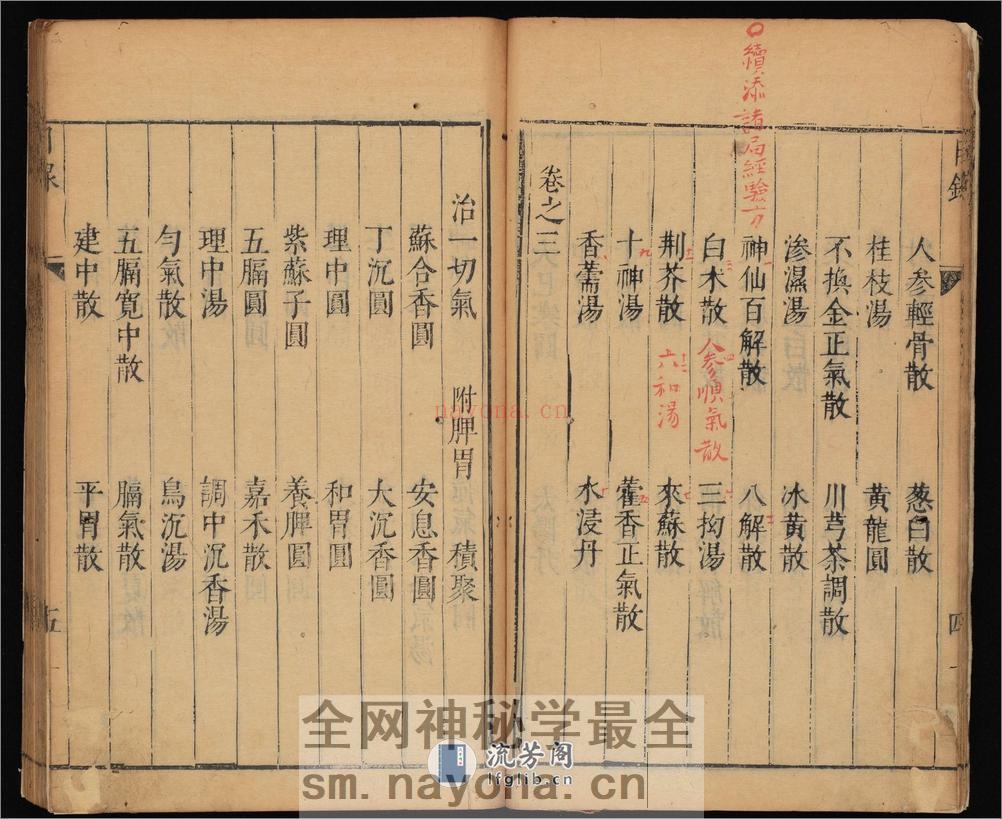 目錄
四
人參輕骨散 葱白散
桂枝湯 黃龍圓
不換金正氣散 川芎茶調散
滲濕湯 冰黃散
○續添諸局經驗方
神仙百解散 八解散
白朮散 人參順氣散 三拗湯
荆芥散 六和湯 來蘇散
十神湯 藿香正氣散
香薷湯 水浸丹
卷之三
治一切氣 附脾胃 積聚
蘇合香圓 安息香圓
丁沉圓 大沉香圓
理中圓 和胃圓
紫蘇子圓 養脾圓
五膈圓 嘉禾散
理中湯 調中沉香湯
勻氣散 烏沉湯
五膈寬中散 膈氣散
建中散 平胃散
目錄
五
nayona.cn
全网神秘学最全
流芳阁
lfglib.cn
sm.nayona.cn